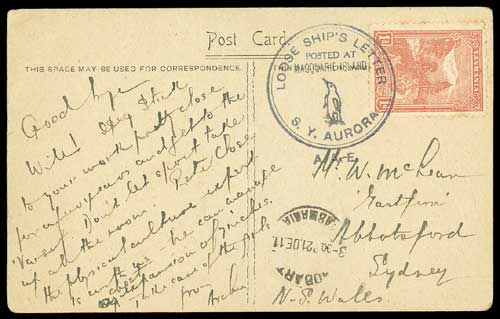 Post Card.
THIS SPACE MAY BE USED FOR CORRESPONDENCE.
LOOSE SHIP'S LETTER
POSTED AT
MACQUARIE ISLAND
S. Y. AURORA
A.A.E.
TASMANIA
1D
1D
Good bye
Wills! Old Stick
to your work pretty close
for a few years and get to the
'Varsity. Don't let sport take
up all the room. Pete Close
the physical culture expert
is with us. he can manage
expansion of 9 inches.
Take care of the girls
from
Archie
H. W. McLean
Abbotsford
Sydney
N. S. Wales.
HOBART
3-30P 21.DE.11
TASMANIA